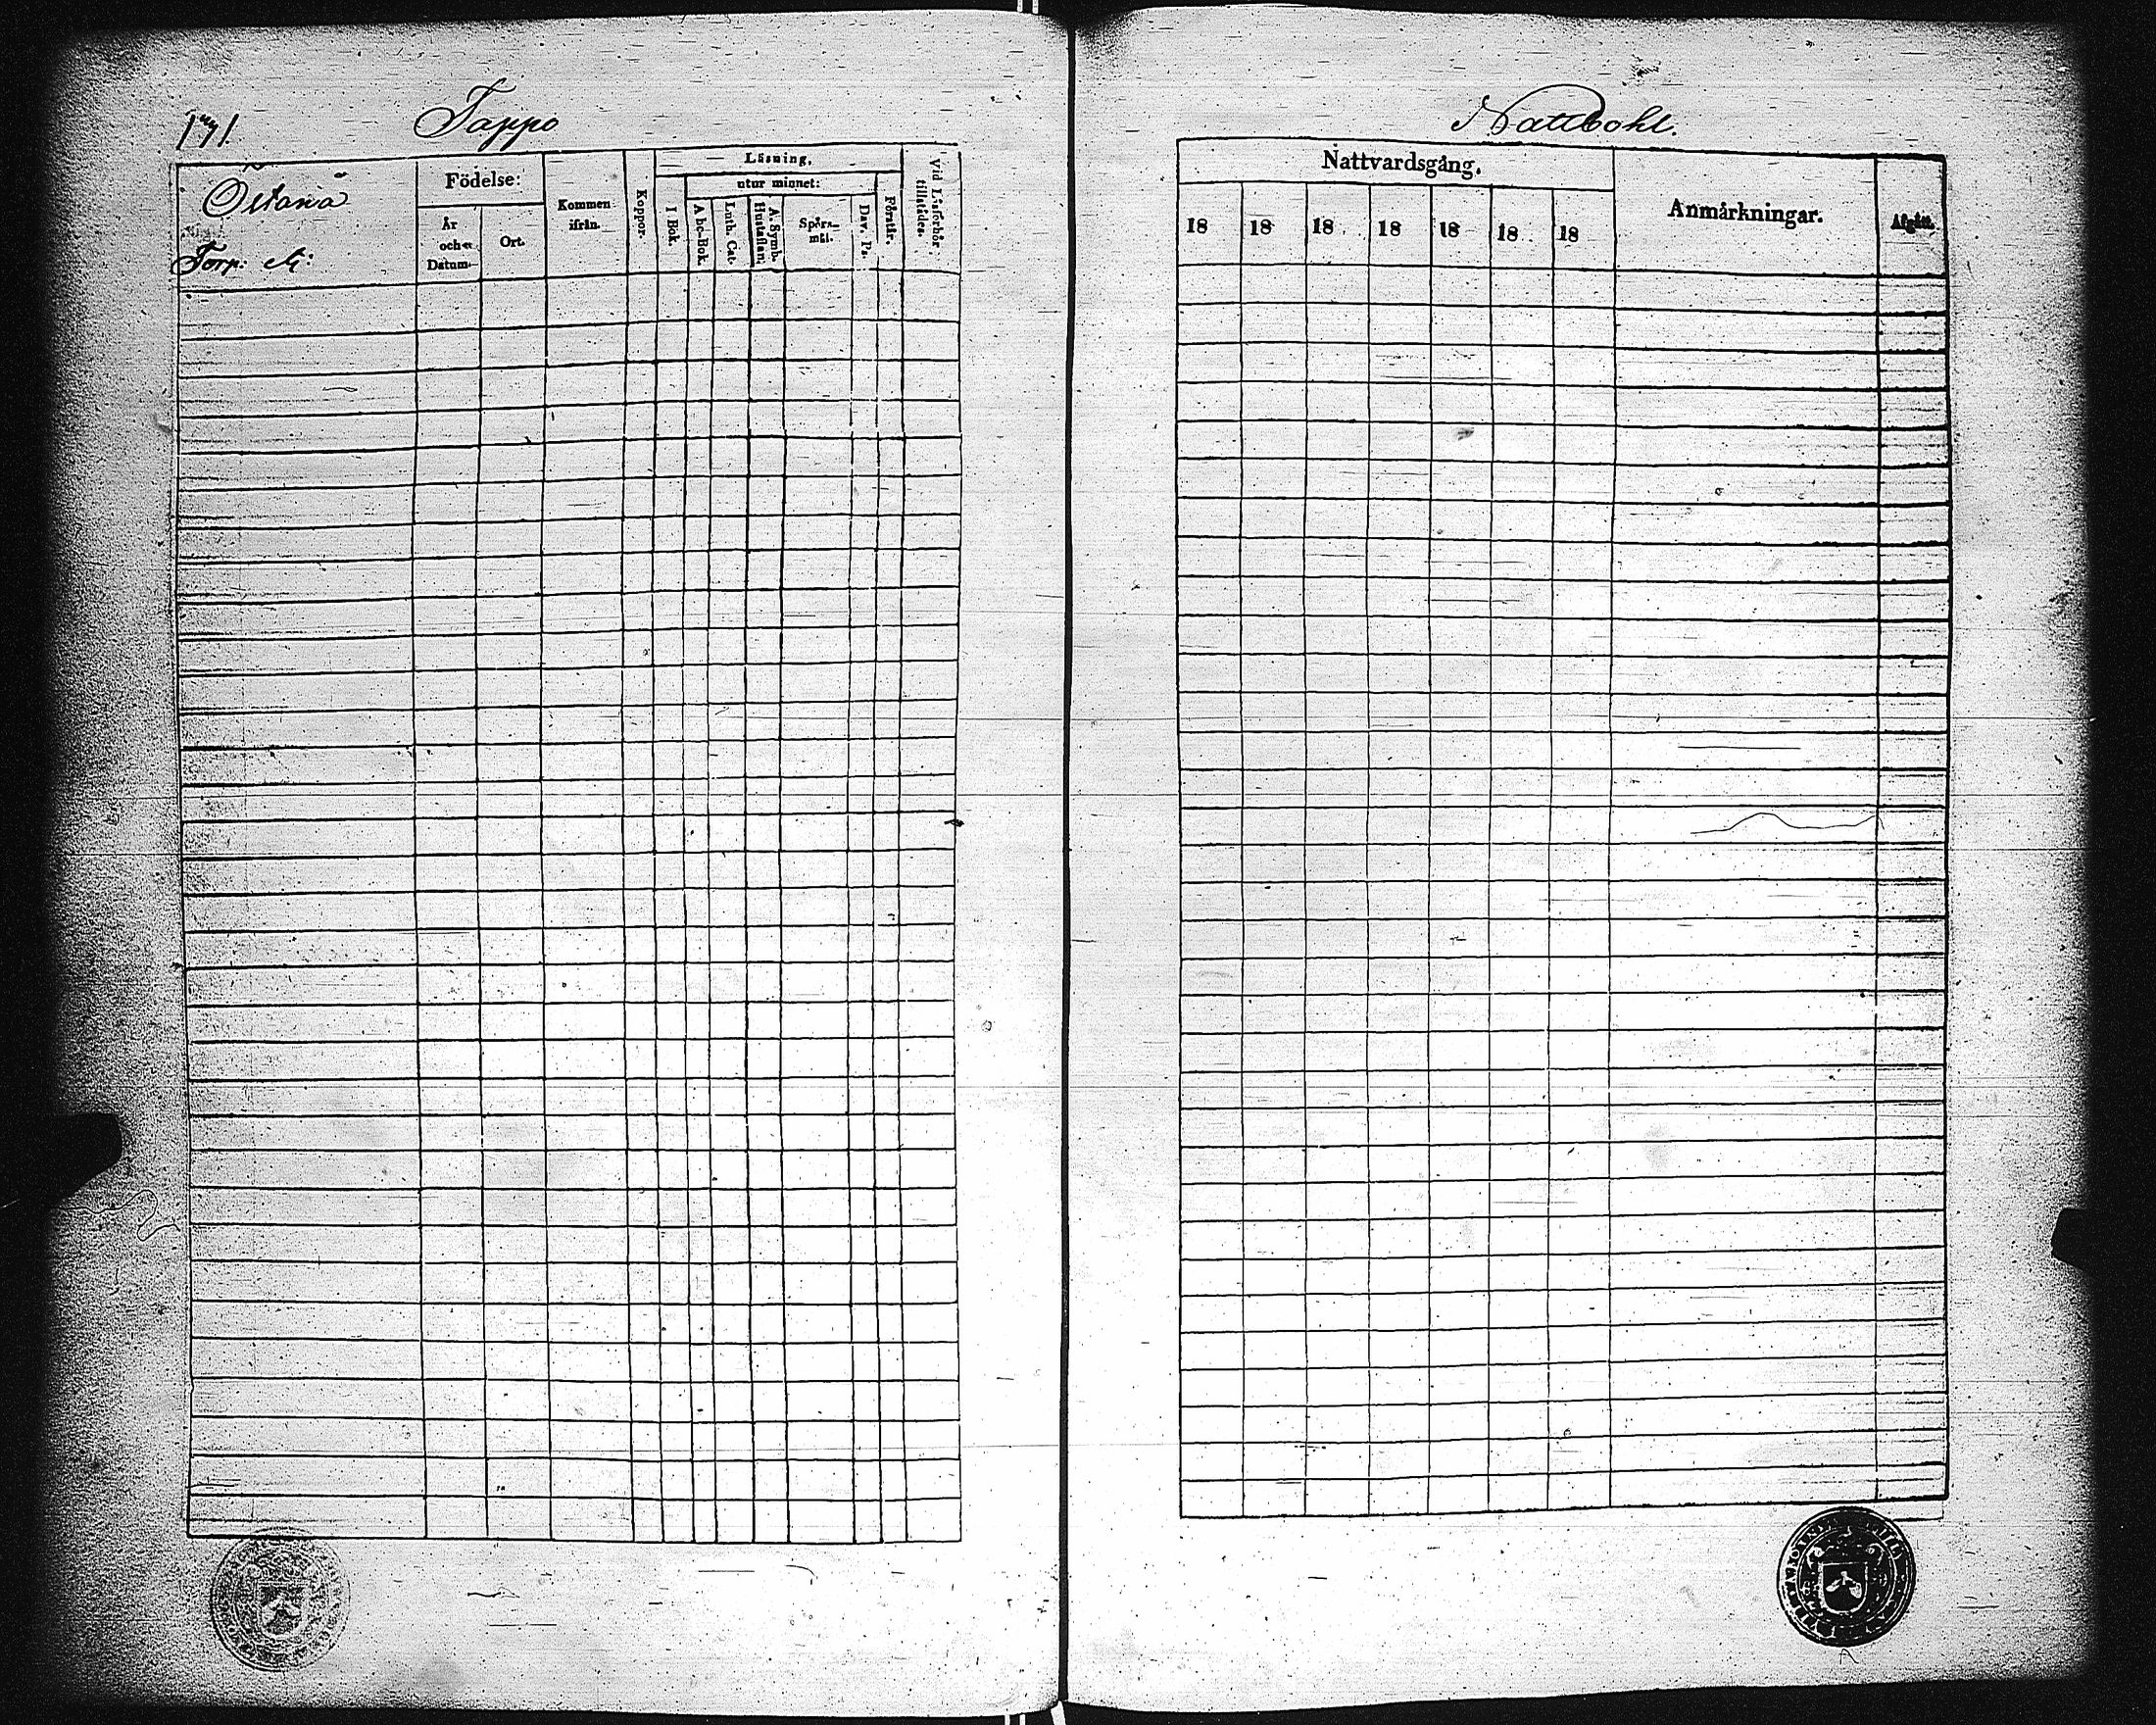 171.
Tappo
Födelse:
År
och
Datum
Ort.
Kommen
ifrån.
Koppor.
Läsning.
I Bok.
utur minnet:
A bc-Bok.
Luth. Cat.
A. Symb.
Hustaflan.
Spörs-
mål.
Dav. Ps.
Förstår.
Vid Läsförhör
tillstädes.
Torp:
Nattbohl.
Nattvardsgång.
18 18 18 18 18 18 18
Anmärkningar.
Afgått.